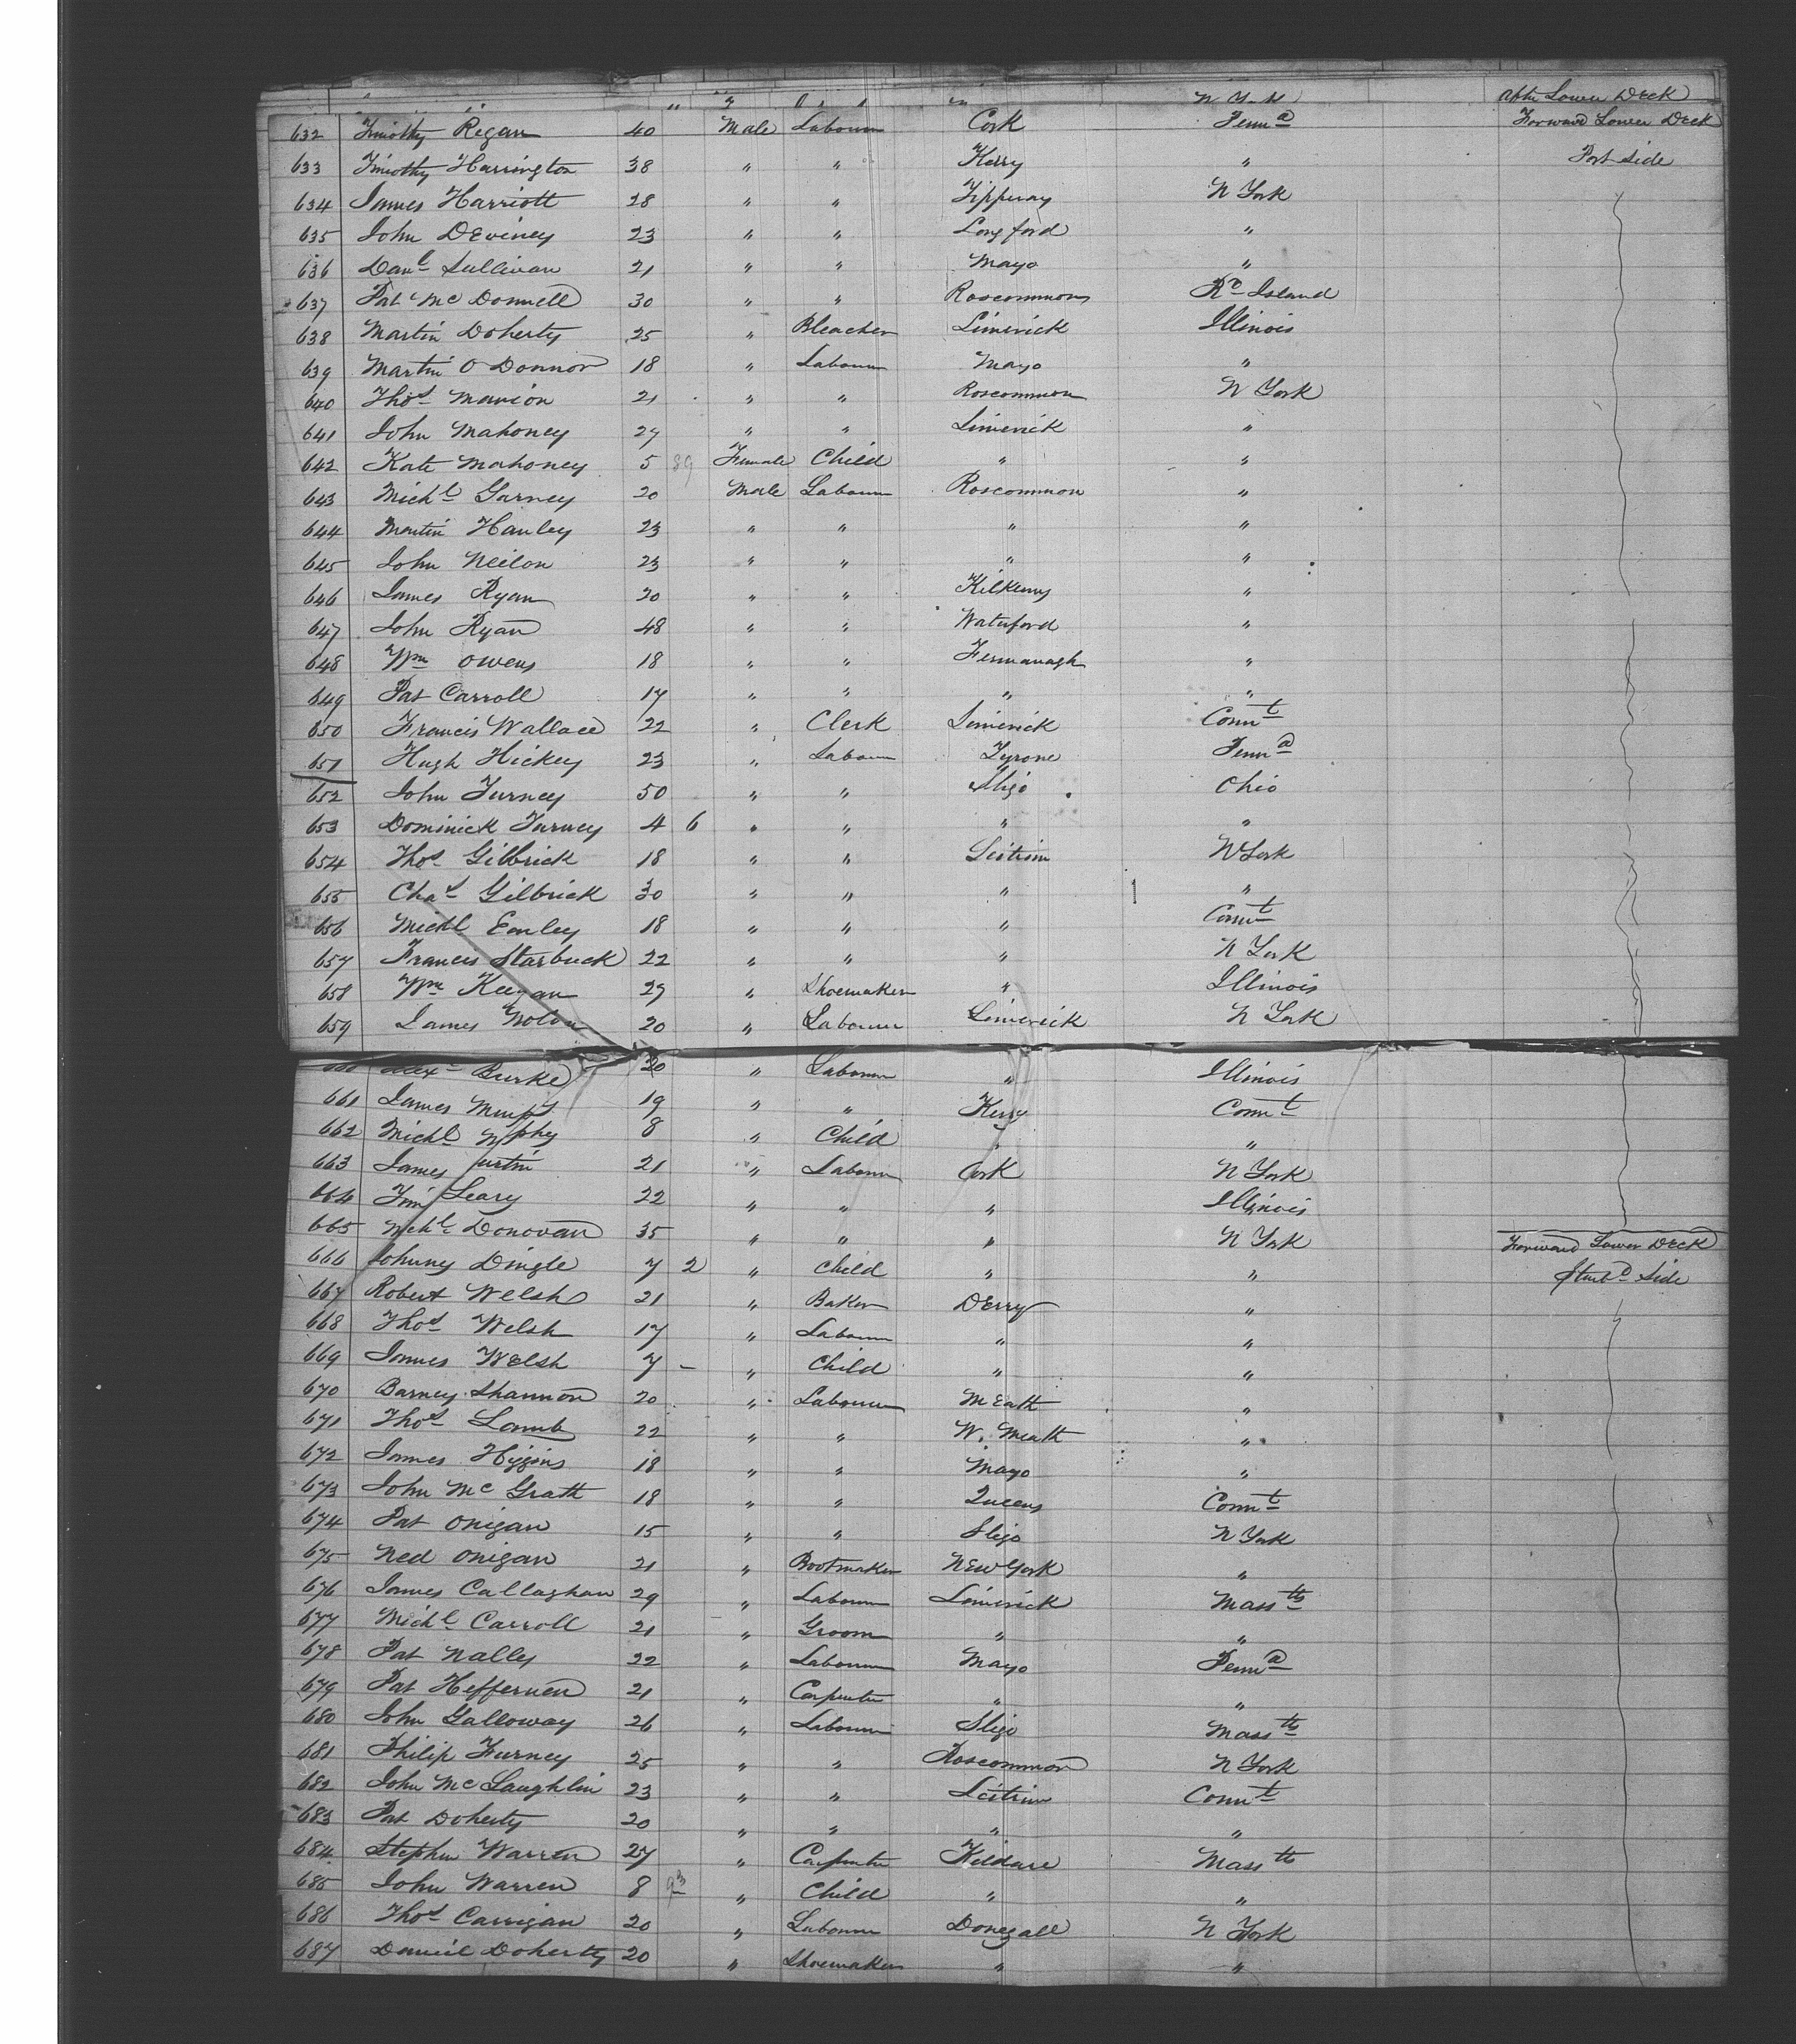 N York After Lower Deck
632 Timothy Regan 40 Male Labourer Cork Penna Forward Lower Deck
633 Timothy Harrington 38 " " Kerry " Port Side
634 James Harriott 28 " " Tipperary N York
635 John Deviney 23 " " Longford "
636 Danl Sullivan 21 " " Mayo "
637 Pat McDonnell 30 " " Roscommon Rd Island
638 Martin Doherty 25 " Bleacher Limerick Illinois
639 Martin O Donnor 18 " Labourer Mayo "
640 Thos Manion 21 " " Roscommon N York
641 John Mahoney 27 " " Limerick "
642 Kate Mahoney 5 89 Female Child " "
643 Michl Garney 20 Male Labourer Roscommon "
644 Martin Hanley 23 " " " "
645 John Neilon 23 " " " "
646 James Ryan 20 " " Kilkenny "
647 John Ryan 48 " " Waterford "
648 Wm Owens 18 " " Fermanagh "
649 Pat Carroll 17 " " " "
650 Francis Wallace 22 " Clerk Limerick Connt
651 Hugh Hickey 23 " Labourer Tyrone Penna
652 John Furney 50 " " Sligo Ohio
653 Dominick Furney 4 6 " " " "
654 Thos Gilbrick 18 " " Leitrim N York
655 Chas Gilbrick 30 " " " "
656 Michl Earley 18 " " " Connt
657 Francis Starbuck 22 " " " N York
658 Wm Keegan 27 " Shoemaker " Illinois
659 James Nolan 20 " Labourer Limerick N York
Alexr Burke 20 " Labourer " Illinois
661 James 19 " " Kerry Connt
662 Michl 8 " Child " "
663 James 21 " Labourer Cork N York
664 Tim Leary 22 " " " Illinois
665 Michl Donovan 35 " " " N York Forward Lower Deck
666 Johnny Dingle 7 2 " Child " " Starbd Side
667 Robert Welsh 21 " Baker Derry "
668 Thos Welsh 17 " Labourer " "
669 James Welsh 7 – " Child " "
670 Barney Shannon 20 " Labourer Meath "
671 Thos Lamb 22 " " W. Meath "
672 James Higgins 18 " " Mayo "
673 John McGrath 18 " " Queens Connt
674 Pat Onigan 15 " " Sligo N York
675 Ned Onigan 21 " Bootmaker New York "
676 James Callaghan 29 " Labourer Limerick Massts
677 Michl Carroll 21 " Groom " "
678 Pat Nally 22 " Labourer Mayo Penna
679 Pat Heffernen 21 " Carpenter " "
680 John Galloway 26 " Labourer Sligo Massts
681 Philip Furney 25 " " Roscommon N York
682 John McLaughlin 23 " " Leitrim Connt
683 Pat Doherty 20 " " " "
684 Stephen Warren 27 " Carpenter Kildare Massts
685 John Warren 8 " Child " "
686 Thos Carrigan 20 " Labourer Donegall N York
687 Daniel Doherty 20 " Shoemaker " "